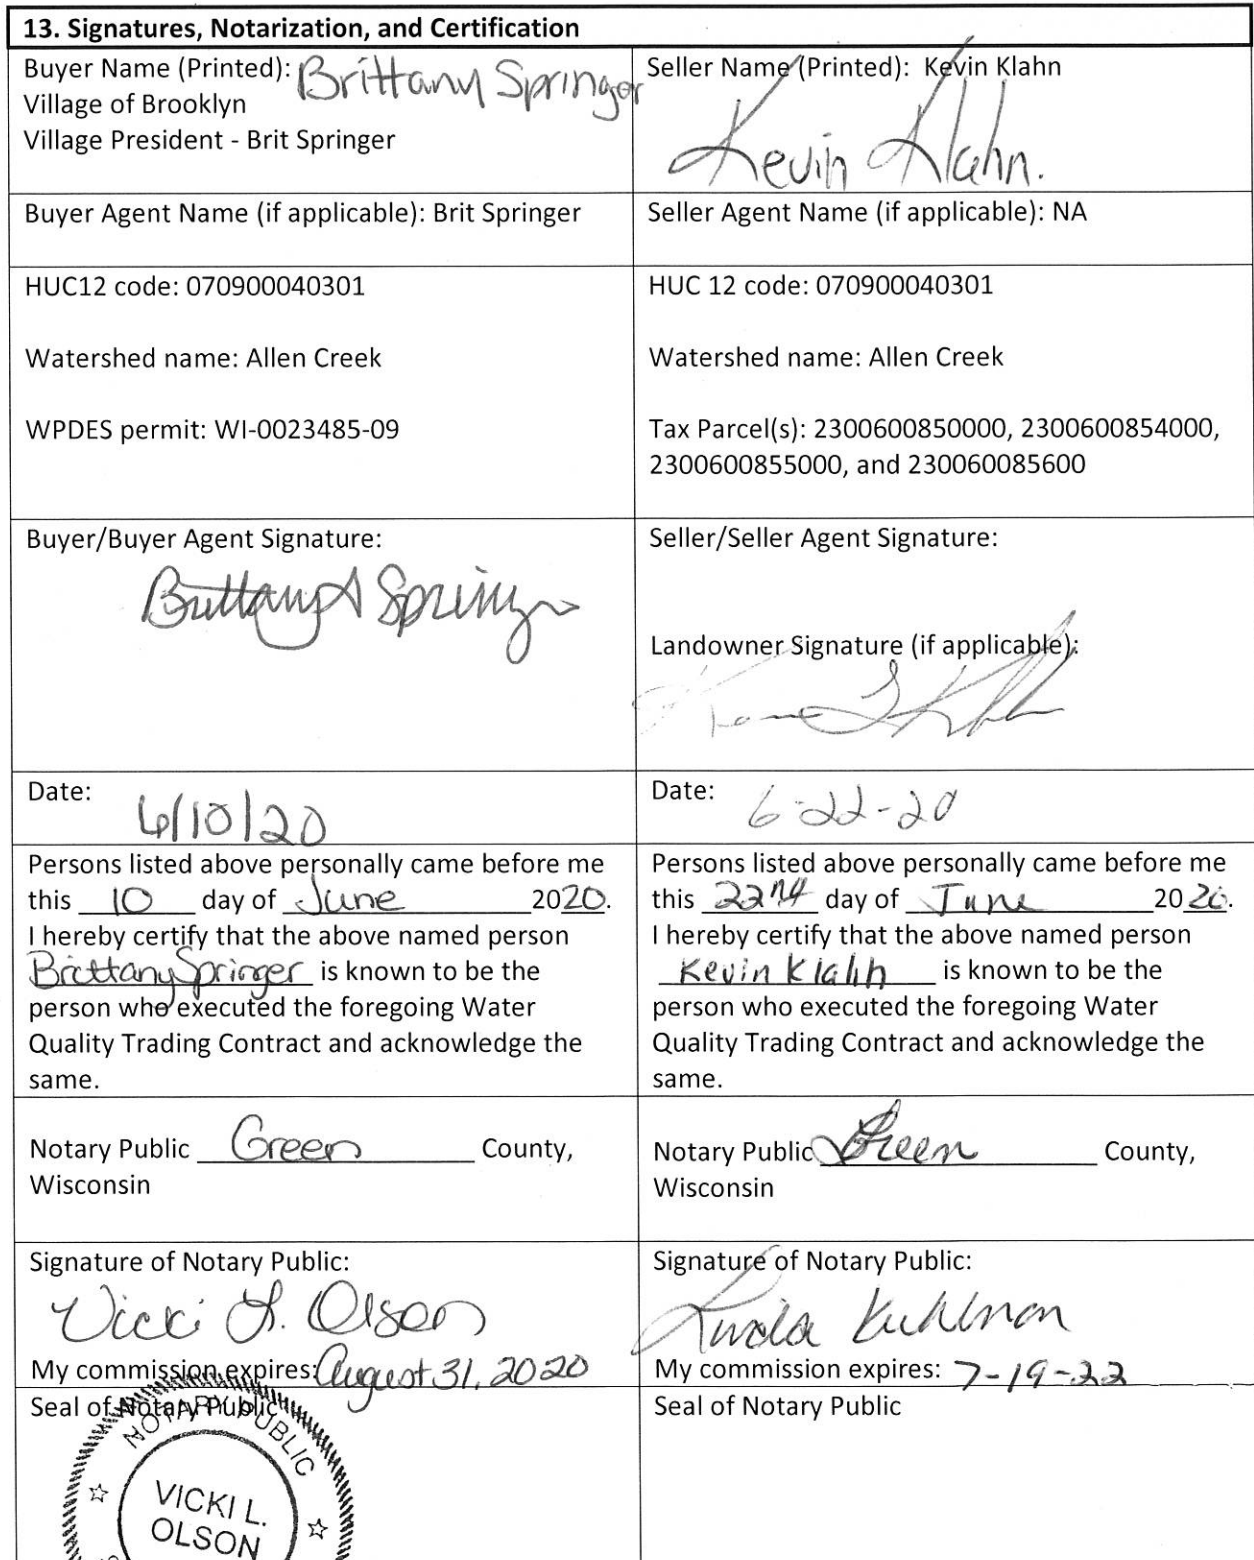 13. Signatures, Notarization, and Certification
Buyer Name (Printed): Brittany Springer
Village of Brooklyn
Village President - Brit Springer
Seller Name (Printed): Kevin Klahn
Kevin Klahn.
Buyer Agent Name (if applicable): Brit Springer
Seller Agent Name (if applicable): NA
HUC12 code: 070900040301
Watershed name: Allen Creek
WPDES permit: WI-0023485-09
HUC 12 code: 070900040301
Watershed name: Allen Creek
Tax Parcel(s): 2300600850000, 2300600854000,
2300600855000, and 230060085600
Buyer/Buyer Agent Signature:
Brittany A Springer
Seller/Seller Agent Signature:
Landowner Signature (if applicable):
Date:
6/10/20
Date:
6-22-20
Persons listed above personally came before me
this 10 day of June 2020.
I hereby certify that the above named person
Brittany Springer is known to be the
person who executed the foregoing Water
Quality Trading Contract and acknowledge the
same.
Persons listed above personally came before me
this 22nd day of June 2020.
I hereby certify that the above named person
Kevin Klahn is known to be the
person who executed the foregoing Water
Quality Trading Contract and acknowledge the
same.
Notary Public Green County,
Wisconsin
Notary Public Green County,
Wisconsin
Signature of Notary Public:
Vicki L. Olson
My commission expires: August 31, 2020
Signature of Notary Public:
Linda Kuhlman
My commission expires: 7-19-22
Seal of Notary Public
NOTARY PUBLIC
VICKI L.
OLSON
Seal of Notary Public